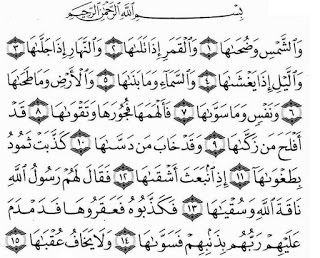 بِسْمِ اللَّهِ الرَّحْمَٰنِ الرَّحِيمِ
وَالشَّمْسِ وَضُحَىٰهَا ١ وَالْقَمَرِ إِذَا تَلَىٰهَا ٢ وَالنَّهَارِ إِذَا جَلَّىٰهَا ٣
وَاللَّيْلِ إِذَا يَغْشَىٰهَا ٤ وَالسَّمَاءِ وَمَا بَنَىٰهَا ٥ وَالْأَرْضِ وَمَا طَحَىٰهَا
٦ وَنَفْسٍ وَمَا سَوَّىٰهَا ٧ فَأَلْهَمَهَا فُجُورَهَا وَتَقْوَىٰهَا ٨ قَدْ
أَفْلَحَ مَن زَكَّىٰهَا ٩ وَقَدْ خَابَ مَن دَسَّىٰهَا ١٠ كَذَّبَتْ ثَمُودُ
بِطَغْوَىٰهَا ١١ إِذِ انۢبَعَثَ أَشْقَىٰهَا ١٢ فَقَالَ لَهُمْ رَسُولُ اللَّهِ
نَاقَةَ اللَّهِ وَسُقْيَىٰهَا ١٣ فَكَذَّبُوهُ فَعَقَرُوهَا فَدَمْدَمَ
عَلَيْهِمْ رَبُّهُم بِذَنۢبِهِمْ فَسَوَّىٰهَا ١٤ وَلَا يَخَافُ عُقْبَىٰهَا ١٥